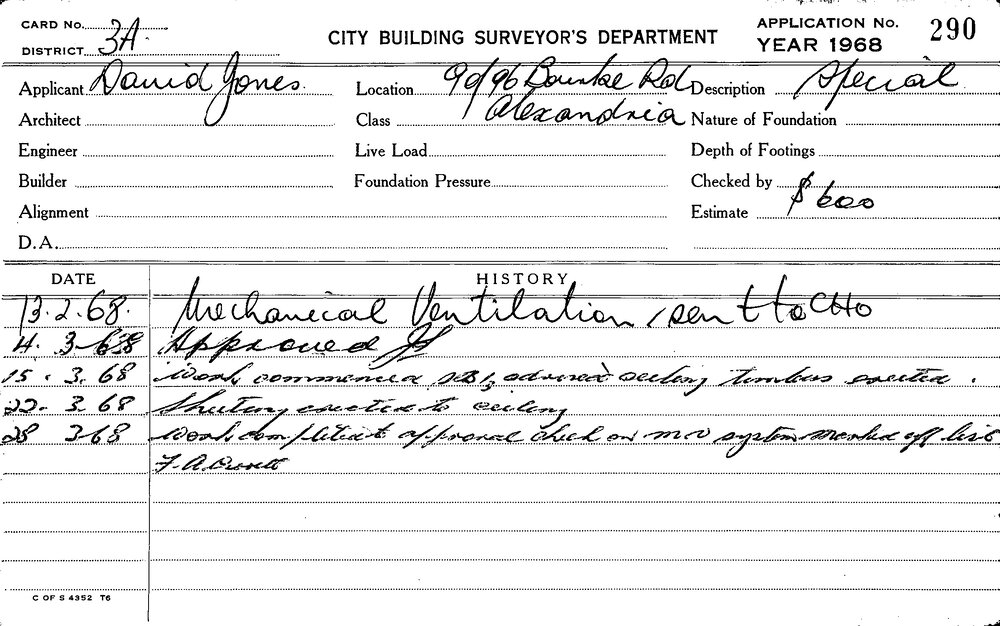 CARD No. 3A.
DISTRICT
CITY BUILDING SURVEYOR'S DEPARTMENT
APPLICATION No. 290
YEAR 1968
Applicant David Jones. Location 90/96 Bourke Rd Description Special
Architect Class Alexandria Nature of Foundation
Engineer Live Load Depth of Footings
Builder Foundation Pressure Checked by
Alignment Estimate $600
D.A.
DATE HISTORY
13.2.68. Mechanical Ventilation, sent to CHO
4. 3.68 Approved
15. 3. 68 Work commenced ceiling timbers erected.
22. 3 68 Sheeting erected to ceiling
28 3 68 Work complete approval check on mv system marked off list
F.A.
C OF S 4352 T6